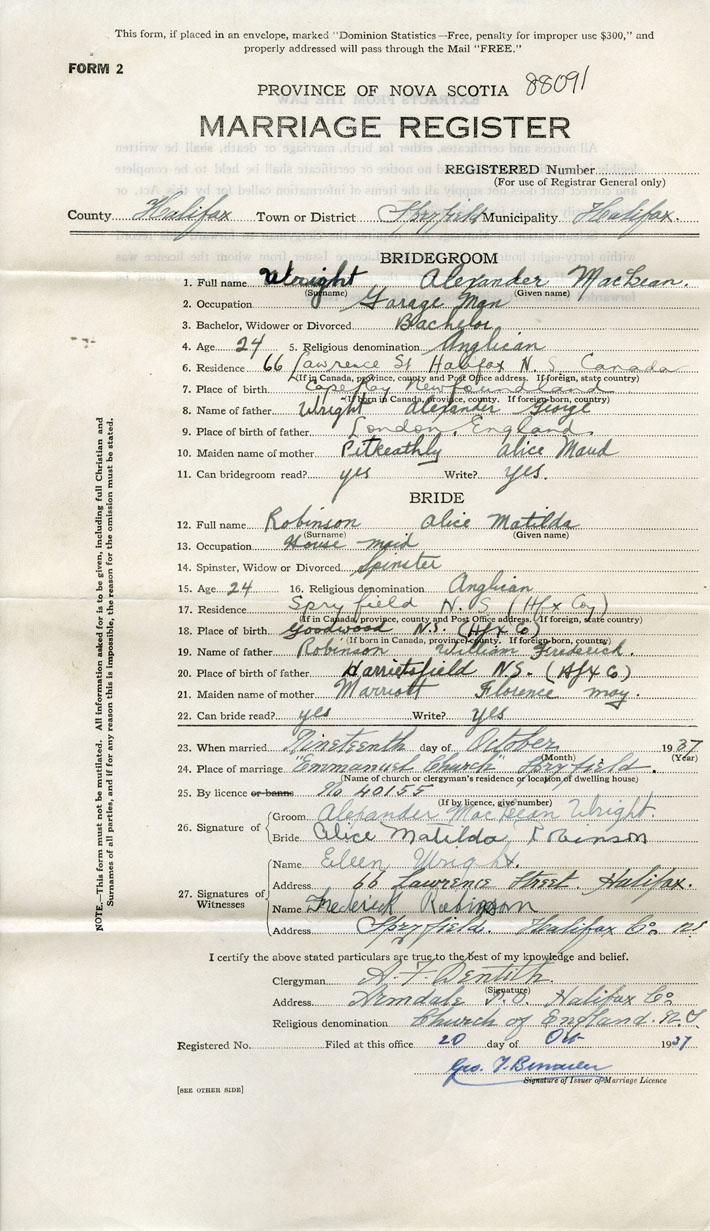 This form, if placed in an envelope, marked "Dominion Statistics—Free, penalty for improper use $300," and
properly addressed will pass through the Mail "FREE."
FORM 2
PROVINCE OF NOVA SCOTIA 88091
MARRIAGE REGISTER
REGISTERED Number
(For use of Registrar General only)
County Halifax Town or District Spryfield Municipality Halifax.
BRIDEGROOM
1. Full name Wright Alexander MacLean.
(Surname) (Given name)
2. Occupation Garage Man
3. Bachelor, Widower or Divorced Bachelor
4. Age 24 5. Religious denomination Anglican
6. Residence 66 Lawrence St Halifax N.S. Canada
(If in Canada, province, county and Post Office address. If foreign, state country)
7. Place of birth Cape Ray Newfoundland
(If born in Canada, province, county. If foreign-born, country)
8. Name of father Wright Alexander George
9. Place of birth of father London, England
10. Maiden name of mother Pitkeathly Alice Maud
11. Can bridegroom read? yes Write? yes.
BRIDE
12. Full name Robinson Alice Matilda
(Surname) (Given name)
13. Occupation House maid
14. Spinster, Widow or Divorced Spinster
15. Age 24 16. Religious denomination Anglican
17. Residence Spryfield N.S (Hfx Coy)
(If in Canada, province, county and Post Office address. If foreign, state country)
18. Place of birth Goodwood N.S. (Hfx Co)
(If born in Canada, province, county. If foreign-born, country)
19. Name of father Robinson William Frederick.
20. Place of birth of father Harrietsfield N.S. (Hfx Co)
21. Maiden name of mother Marriott Florence may.
22. Can bride read? yes Write? yes
23. When married Nineteenth day of October 1937
(Month) (Year)
24. Place of marriage "Emmanuel Church" Spryfield.
(Name of church or clergyman's residence or location of dwelling house)
25. By licence or banns No 40155
(If by licence, give number)
26. Signature of Groom Alexander MacLean Wright.
Bride Alice Matilda Robinson
27. Signatures of Witnesses
Name Eileen Wright.
Address 66 Lawrence Street. Halifax.
Name Frederick Robinson
Address Spryfield. Halifax Co. NS
I certify the above stated particulars are true to the best of my knowledge and belief.
Clergyman A. F. Dentith.
(Signature)
Address Armdale P.O. Halifax Co
Religious denomination Church of England. N.S.
Registered No. Filed at this office 20 day of Oct 1937
Geo.
Signature of Issuer of Marriage Licence
[SEE OTHER SIDE]
NOTE.—This form must not be mutilated. All information asked for is to be given, including full Christian and
Surnames of all parties, and if for any reason this is impossible, the reason for the omission must be stated.